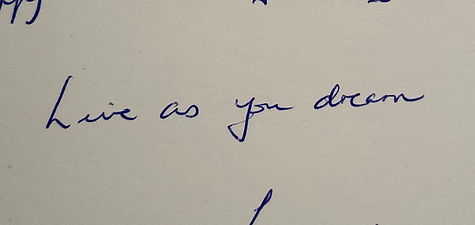 Live as you dream